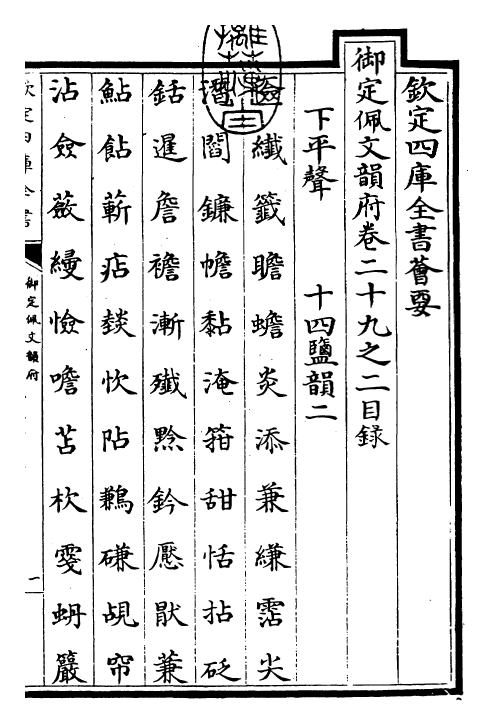 欽定四庫全書薈要
御定佩文韻府卷二十九之二目録
下平聲　十四鹽韻二
纖籤瞻蟾炎添兼縑霑尖
潛閻鐮幨黏淹箝甜恬拈砭
銛暹詹襜漸殲黚鈐懕猒蒹
鮎飴蘄痁燅忺阽鶼磏覘帘
沾僉薟縵憸噡苫杴霎蚦簽
欽定四庫全書
御定佩文韻府
一